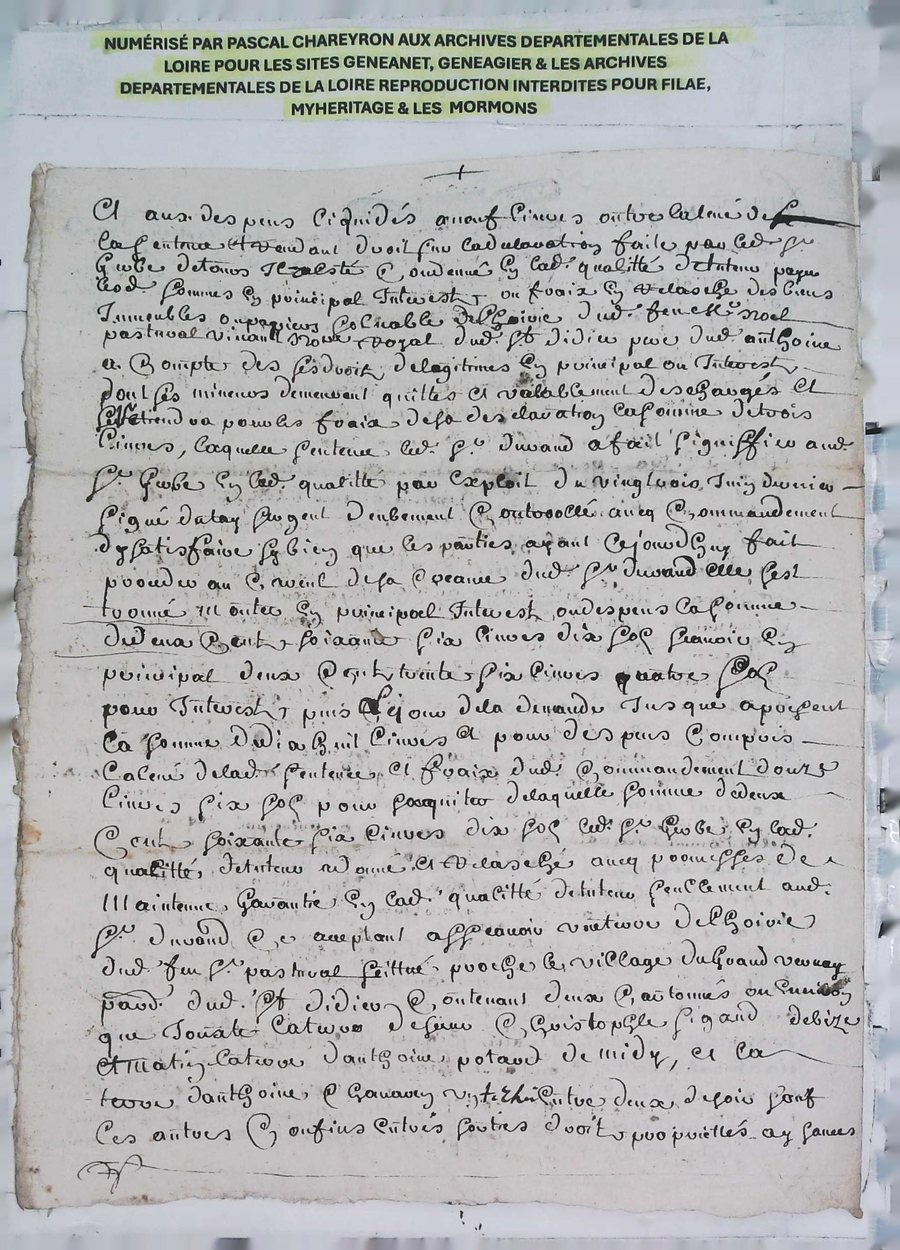 NUMÉRISÉ PAR PASCAL CHAREYRON AUX ARCHIVES DEPARTEMENTALES DE LA
LOIRE POUR LES SITES GENEANET, GENEAGIER & LES ARCHIVES
DEPARTEMENTALES DE LA LOIRE REPRODUCTION INTERDITES POUR FILAE,
MYHERITAGE & LES MORMONS
Et aux despens liquidés a neuf livres oultre la levé de
la sentence et rendant droit sur la declaration faite par led. Sr
Grobe condenné en lad. qualitté de tuteur payer
lesd. sommes en principal Interestz ou fraix en relasche des biens
Immeubles dud. feu Noel
pastural vivant Nore Royal dud. St didier pere dud. anthoine
a Compte des sesdroitz delegitimes en principal ou Interestz
dont les mineurs demeurent quittes et valablement deschargés Et
pour les fraix de sa desclaration la somme de trois
livres, laquelle sentence led. Sr. durand a fait signiffier aud.
Sr. Grobe en lad. qualitté par Exploit du vingtrois Juin dernier
signé datay sergent deubement Controollé avecq Commandement
dy satisfaire sy bien que les parties ayant cejourdhuy fait
proceder au de sa Creance dud. Sr. durand elle sest
treuvé monter en principal Interestz oudespens la somme
de deux Centz soixante six livres dix solz scavoir en
principal deux Centz trente six livres quatre solz
pour Interestz puis le jour dela demande Jusque a present
la somme de dix huit livres et pour despens Compris
la levé de lad. sentence et fraix dud. Commandement douze
livres six solz pour sacquiter delaquelle somme de deux
Centz soixante six livres dix solz led. Sr. Grobe en lad.
qualitté de tuteur a donné et relasché avecq promesses de
Maintenue Garantie en lad. qualitté de tuteur seullement aud.
Sr. durand Ce acceptant assavoir une terre de lhoirie
dud. feu Sr. pastural scittué proche le village du Grand vernay
parr. dud. St didier Contenant deux Cartonnés ou Environ
que Jouxte la terre de sieur Christophle sigaud debize
et matin la terre danthoine potard de midy, et la
terre danthoine Chanavey Entre deux de soir sauf
les autres Confins entrés sorties droitz proprietés aysances